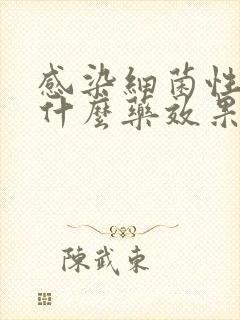 感染細菌性
什麼藥效果
陳武東